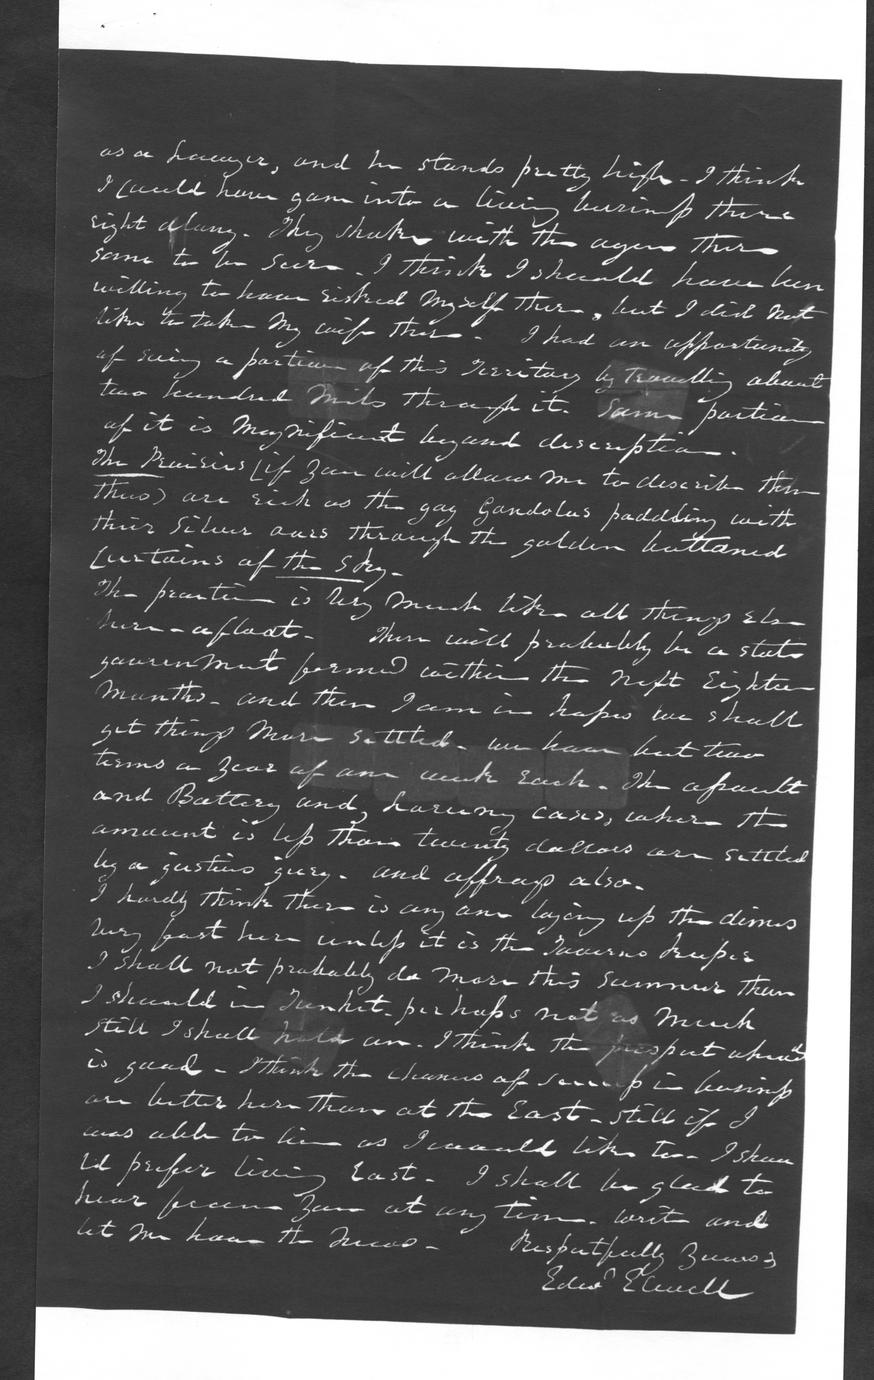 as a Lawyer, and he stands pretty high - I think
I could have gone into a living business there
right along. They shake with the ague there
some to be sure. I think I should have been
willing to have risked myself there, but I did not
like to take my wife there. I had an opportunity
of seeing a portion of this Territory by travelling about
two hundred miles through it. Some portion
of it is magnificent beyond description.
The Prairies (if you will allow me to describe them
thus) are rich as the gay Gondolas paddling with
their Silver oars through the golden buttoned
Curtains of the Sky.
The practice is very much like all things else
here - afloat. There will probably be a state
government formed within the next Eighteen
months - and then I am in hopes we shall
get things more settled. we have but two
terms a year of one week each. The assault
and Battery and larceny cases, where the
amount is less than twenty dollars are settled
by a justices jury. and affrays also.
I hardly think there is any one laying up the dimes
very fast here unless it is the Taverns keeper
I shall not probably do more this summer than
I should in - perhaps not as much
still I shall hold on. I think the prospect ahead
is good - I think the chances of success in business
are better here than at the East - still if I
was able to live as I would like to - I shou
ld prefer living East. I shall be glad to
hear from you at any time. write and
let me have the news -
Respectfully Yours
Edwd Elwell